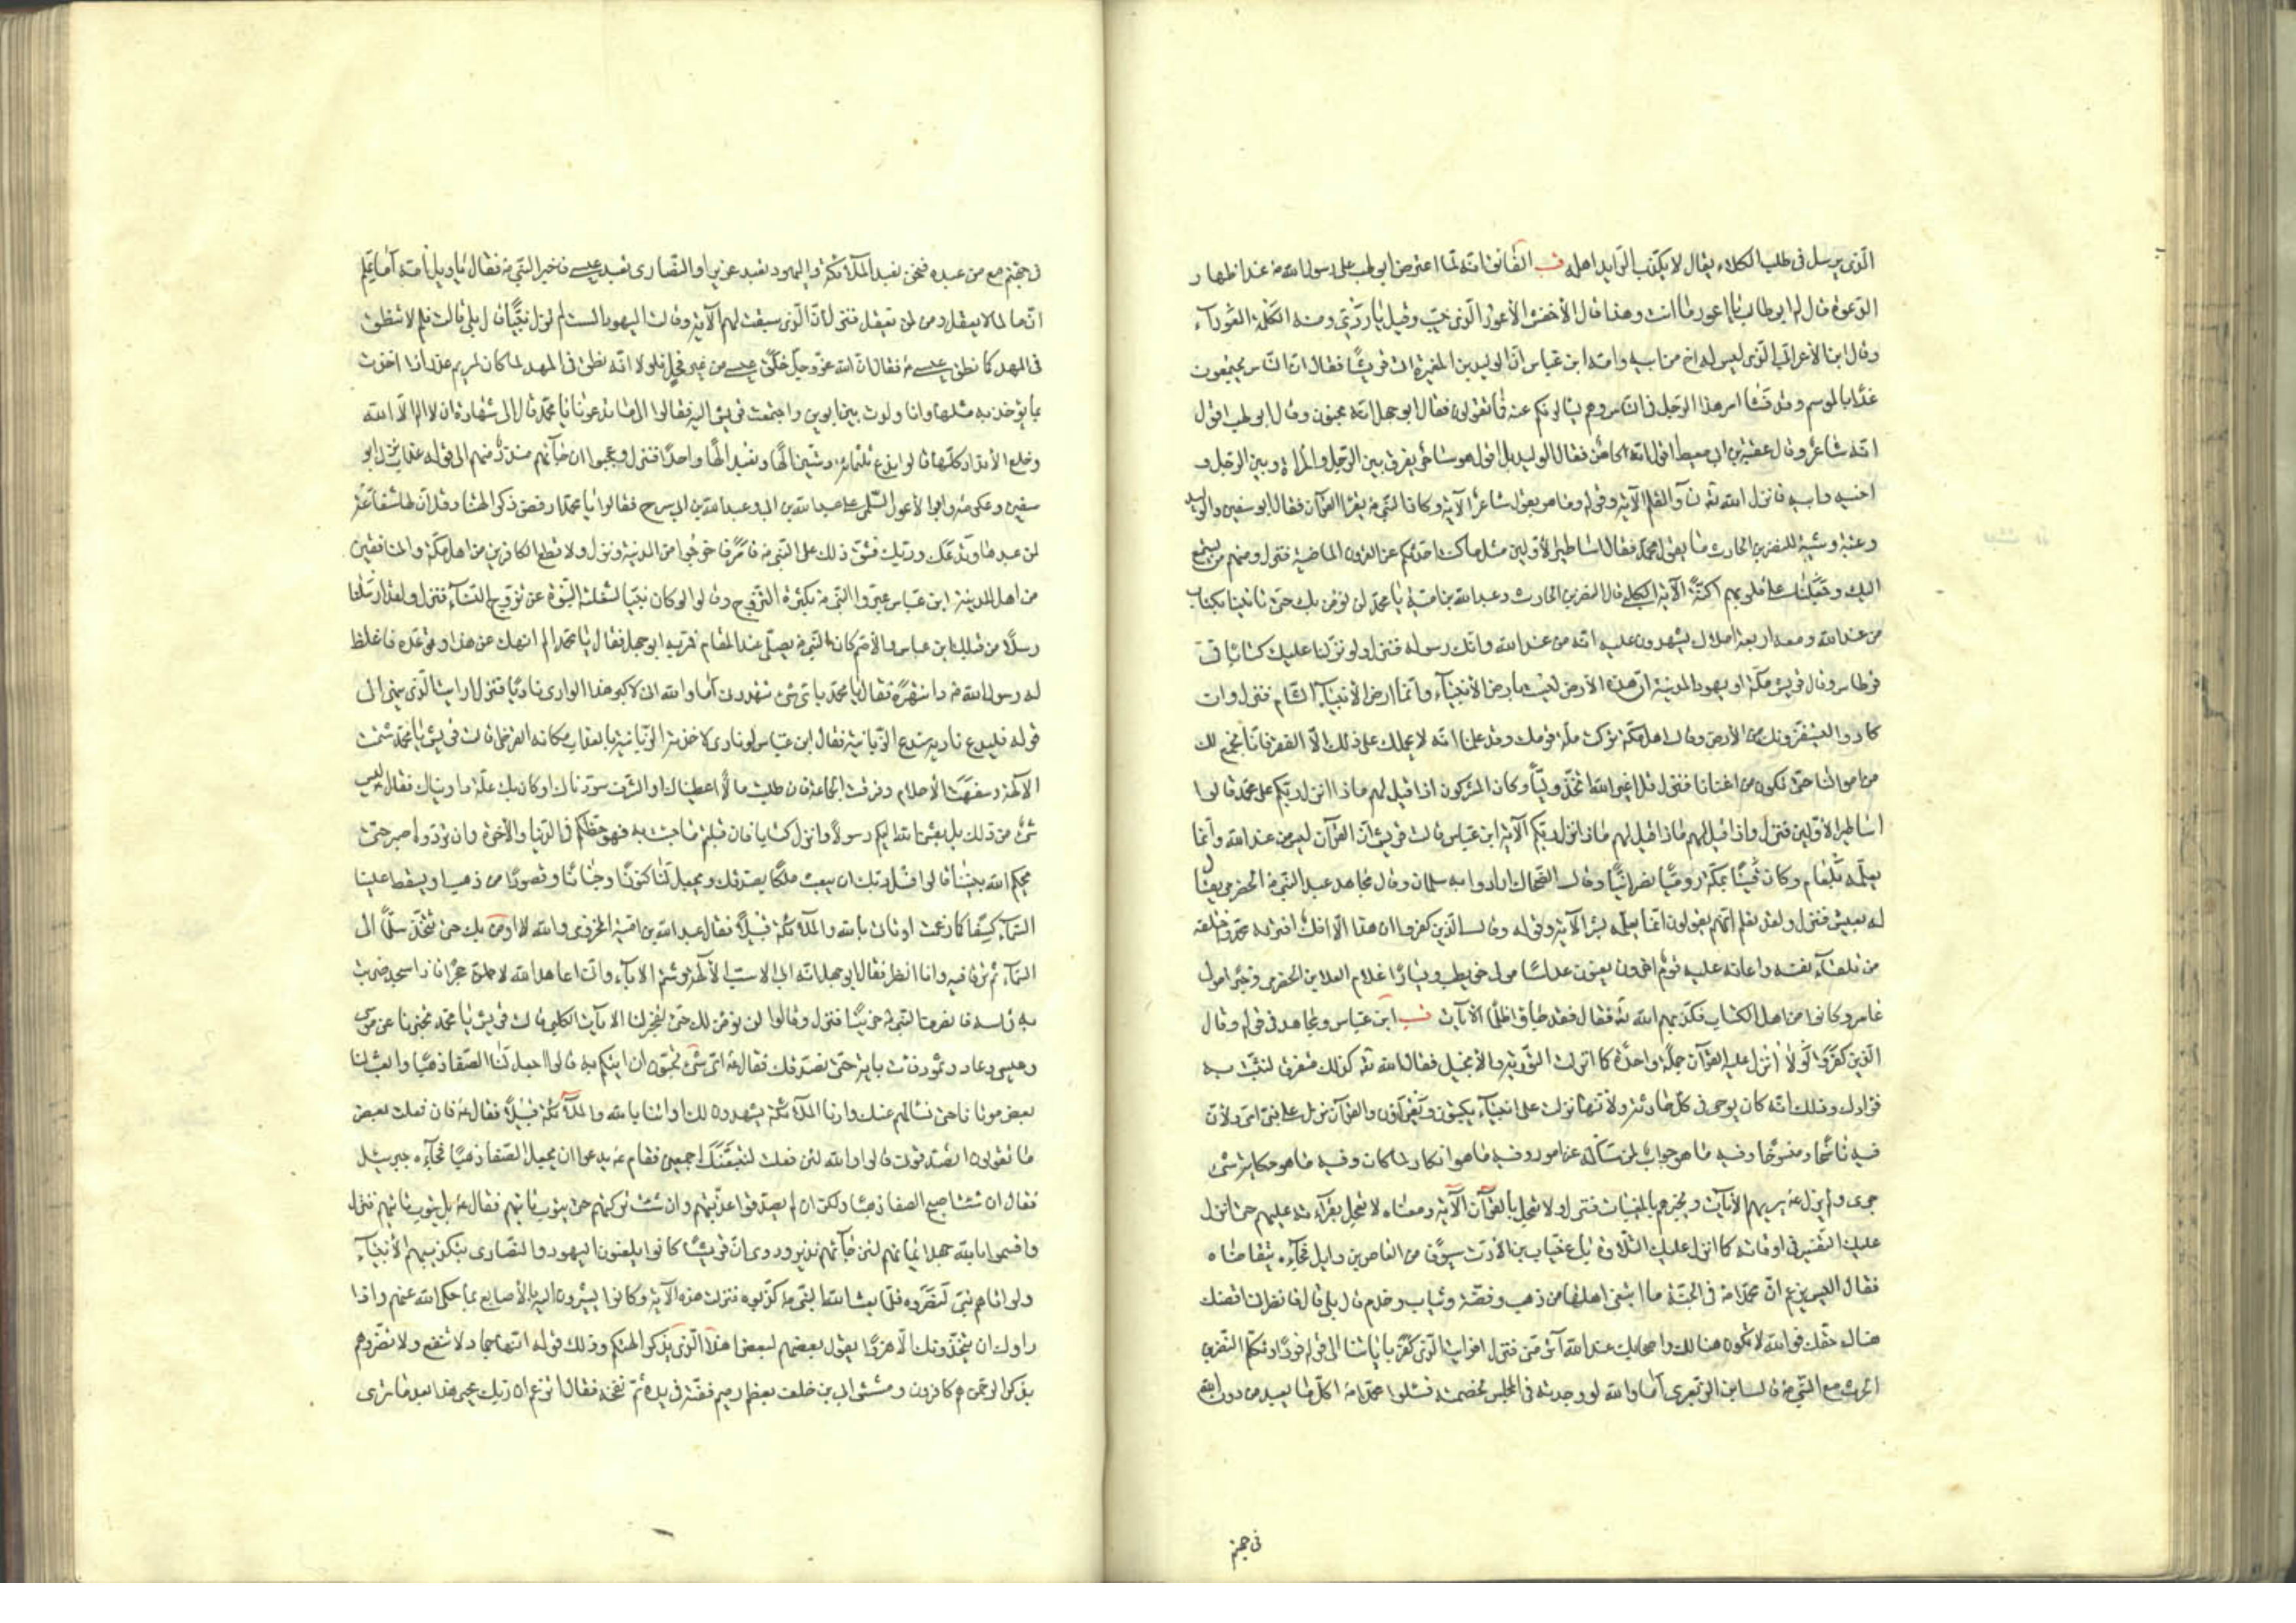 الذي يرسل في طلب الكلاء يقال لا يكذب الرايد اهله قب الفايق انه لما اعترض ابو لهب على رسول الله ص عند اظهار
الدعوة قال له ابو طالب يا اعور ما انت وهذا قال الأخفش الأعور الذي خيب وقيل يا ردي ومنه الكلمة العوراء
وقال ابن الأعرابي الذي ليس له اخ من ابيه وامه ابن عباس ان الوليد بن المغيرة اتى قريشا فقال ان الناس يجتمعون
غدا بالموسم وقد فشا امر هذا الرجل في الناس وهم يسألونكم عنه فما تقولون فقال ابو جهل انه مجنون وقال ابو لهب اقول
انه شاعر وقال عقبة بن ابي معيط اقول انه كاهن فقال الوليد بل اقول هو ساحر يفرق بين الرجل والمراة وبين الرجل و
اخيه وابيه فانزل الله ته ن والقلم الآية وقوله وما هو بقول شاعر الآية وكان النبي ص يقرا القرآن فقال ابو سفين والوليد
وعتبة وشيبة للنضر بن الحارث ما يقول محمد فقال اساطير الأولين مثل ما كنت احدثكم عن القرون الماضية فنزل ومنهم من يستمع
اليك وجعلنا على قلوبهم اكنة الآية الكلبي قال النضر بن الحارث وعبد الله بن امية يا محمد لن نؤمن بك حتى تاتينا بكتاب
من عند الله ومعه اربعة املاك يشهدون عليه انه من عند الله وانك رسوله فنزل ولو نزلنا عليك كتابا في
قرطاس وقال قريش مكة او يهود المدينة ان هذه الأرض ليست بارض الأنبياء وانما ارض الأنبياء الشام فنزل وان
كادوا ليستفزونك من الأرض وقال اهل مكة تركت ملة قومك وقد علمنا انه لا يحملك على ذلك الا الفقر فانا نجمع لك
من اموالنا حتى تكون من اغنانا فنزل قل اغير الله اتخذ وليا وكان المشركون اذا قيل لهم ماذا انزل ربكم على محمد قالوا
اساطير الأولين فنزل واذا قيل لهم ماذا قيل لهم ماذا انزل ربكم الآية ابن عباس قالت قريش ان القرآن ليس من عند الله وانما
يعلمه بلعام وكان قينا بمكة روميا نصرانيا وقال الضحاك ارادوا به سلمان وقال مجاهد عبد البني الحضرمي يقال
له يعيش فنزل ولقد نعلم انهم يقولون انما يعلمه بشر الآية وقوله وقال الذين كفروا ان هذا الا افك افتراه محمد واختلقه
من تلقاء نفسه واعانه عليه قوم اخرون يعنون عداسا مولى حويطب ويسارا غلام العلا بن الحضرمي وحبرا مولى
عامر وكانوا من اهل الكتاب فكذبهم الله ته فقال فقد جاؤا ظلما الآيات قب ابن عباس ومجاهد في قوله وقال
الذين كفروا لولا انزل عليه القرآن جملة واحدة كما انزلت التورية والأنجيل فقال الله ته كذلك متفرقا لنثبت به
فؤادك وذلك انه كان يوحى في كل حادثة ولأنها نزلت على انبياء يكتبون ويقرؤن والقرآن نزل على نبي امي ولأن
فيه ناسخا ومنسوخا وفيه ما هو جواب لمن سأله عن امور وفيه ما هو انكار لما كان وفيه ما هو حكاية شئ
جرى ولم يزل ع يريهم الآيات ويخبرهم بالمغيبات فنزل ولا تعجل بالقرآن الآية ومعناه لا تعجل بقرآءته عليهم حتى انزل
عليك التفسير في اوقاته كما انزل عليك التلاوة باع خباب بن الأرت سيوفا من العاص بن وايل فجاءه يتقاضاه
فقال اليس يزعم ان محمدا ص في الجنة ما ابتغى اهلها من ذهب وفضة وثياب وخدم قال بلى قال فانظرني اقضك
هناك حقك فوالله لا تكون هنالك واصحابك عند الله آثر مني فنزل افرايت الذي كفر باياتنا الى قوله فردا وتكلم النضر بن
الحرث مع النبي ص قال له ابن الزبعرى اما والله لو وجدته في المجلس لخصمته فسلوا محمدا ص اكل ما يعبد من دون الله
في جهنم
في جهنم مع من عبده فنحن نعبد الملآئكة واليهود تعبد عزيرا والنصارى تعبد عيسى فاخبر النبي ص فقال يا ويل امه اما علم
ان ما لما لا يعقل ومن لمن يعقل فنزل ان الذين سبقت لهم الآية وقالت اليهود الست لم تزل نبيا قال بلى قالت فلم لا تنطق
في المهد كما نطق عيسى ع فقال ان الله عز وجل خلق عيسى من غير فحل فلولا انه نطق في المهد لما كان لمريم عذر اذا اخذت
بما يؤخذ به مثلها وانا ولدت بين ابوين واجتمعت قريش اليه فقالوا الى ما تدعونا يا محمد قال الى شهادة ان لا اله الا الله
وخلع الأنداد كلها قالوا ندع ثلثمائة وستين الها ونعبد الها واحدا فنزل وعجبوا ان جاءهم منذر منهم الى قوله عذاب نزل ابو
سفين وعكرمة وابو الأعور السلمي على عبد الله بن ابي وعبد الله بن ابي سرح فقالوا يا محمد ارفض ذكر آلهتنا وقل ان لها شفاعة
لمن عبدها وندعك وربك فشق ذلك على النبي ص فامر فاخرجوا من المدينة ونزل ولا تطع الكافرين من اهل مكة والمنافقين
من اهل المدينة ابن عباس عيروا النبي ص بكثرة التزوج وقالوا لو كان نبيا لشغلته النبوة عن تزويج النساء فنزل ولقد ارسلنا
رسلا من قبلك ابن عباس والأصم كان النبي ص يصلي عند المقام فمر به ابو جهل فقال يا محمد الم انهك عن هذا وتوعده فاغلظ
له رسول الله ص وانتهره فقال يا محمد باي شئ تهددني اما والله اني لأكبر هذا الوادي ناديا فنزل ارايت الذي ينهى الى
قوله فليدع ناديه سندع الزبانية فقال ابن عباس لو نادى لاخذته الزبانية بالعذاب مكانه القرظي قالت قريش يا محمد شتمت
الآلهة وسفهت الأحلام وفرقت الجماعة فان طلبت مالا اعطيناك او الشرف سودناك او كان بك علة داويناك فقال ليس
شئ من ذلك بل بعثني الله اليكم رسولا وانزل كتابا فان قبلتم ما جئت به فهو حظكم في الدنيا والآخرة وان تردوه اصبر حتى
يحكم الله بيننا قالوا فسل ربك ان يبعث ملكا يصدقك ويجعل لنا كنوزا وجنانا وقصورا من ذهب او يسقط علينا
السماء كسفا كما زعمت او تاتي بالله والملآئكة قبيلا فقال عبد الله بن امية المخزومي والله لا اومن بك حتى تتخذ سلما الى
السماء ثم ترقا فيه وانا انظر فقال ابو جهل انه ابى الا سب الآلهة وشتم الاباء وانا اعاهد الله لاحملن حجرا فاذا سجد ضربت
به راسه فانصرف النبي ص حزينا فنزل وقالوا لن نؤمن لك حتى تفجر لنا الآيات الكلبي قالت قريش يا محمد تخبرنا عن موسى
وعيسى وعاد وثمود فات باية حتى نصدقك فقال ص اي شئ تحبون ان اتيكم به قالوا اجعل لنا الصفا ذهبا وابعث لنا
بعض موتانا حتى نسألهم عنك وارنا الملآئكة يشهدون لك او ائتنا بالله والملآئكة قبيلا فقال ص فان فعلت بعض
ما تقولون اتصدقونني قالوا والله لئن فعلت لنتبعنك اجمعين فقام ص يدعو ان يجعل الصفا ذهبا فجاءه جبرئيل
فقال ان شئت اصبح الصفا ذهبا ولكن ان لم يصدقوا عذبتهم وان شئت تركتهم حتى يتوب تائبهم فقال ص بل يتوب تائبهم فنزل
واقسموا بالله جهد ايمانهم لئن جاءهم نذير وروي ان قريشا كانوا يلعنون اليهود والنصارى بتكذيبهم الأنبياء
ولو اتاهم نبي لنصروه فلما بعث الله النبي ص كذبوه فنزلت هذه الآية وكانوا يشيرون اليه بالأصابع بما حكى الله عنهم واذا
راوك ان يتخذونك الا هزوا يقول بعضهم لبعض اهذا الذي يذكر آلهتكم وذلك قوله انها جماد لا تنفع ولا تضر وهم
بذكر الرحمن هم كافرون ومشى ابي بن خلف بعظم رميم ففته في يده ثم نفخه فقال اتزعم ان ربك يحيي هذا بعد ما ترى